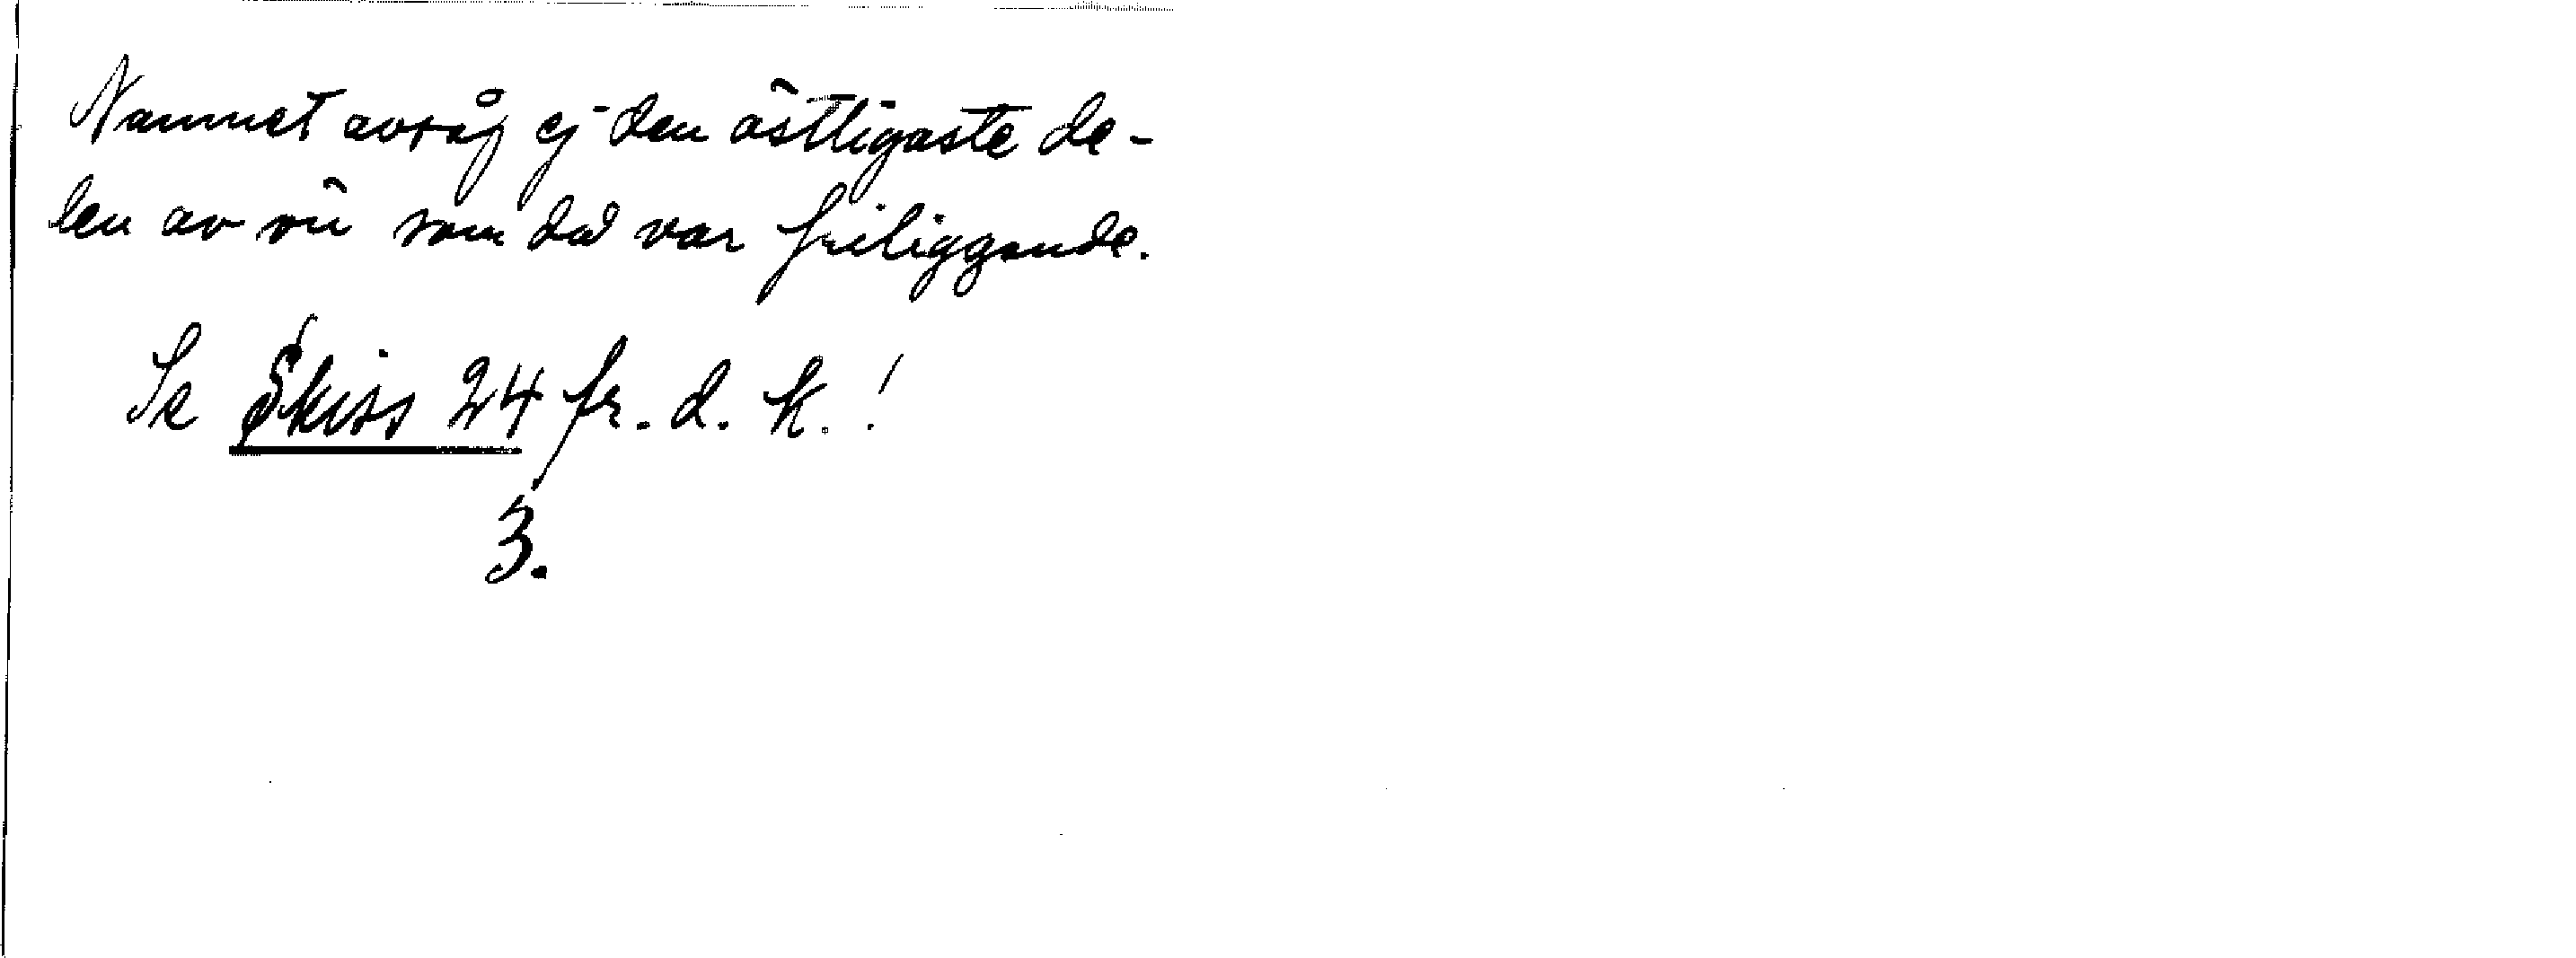 Namnet avsåg ej den östligaste de-
len av ön som då var friliggande.
Se Skiss 24 fr. d. k.!
3.